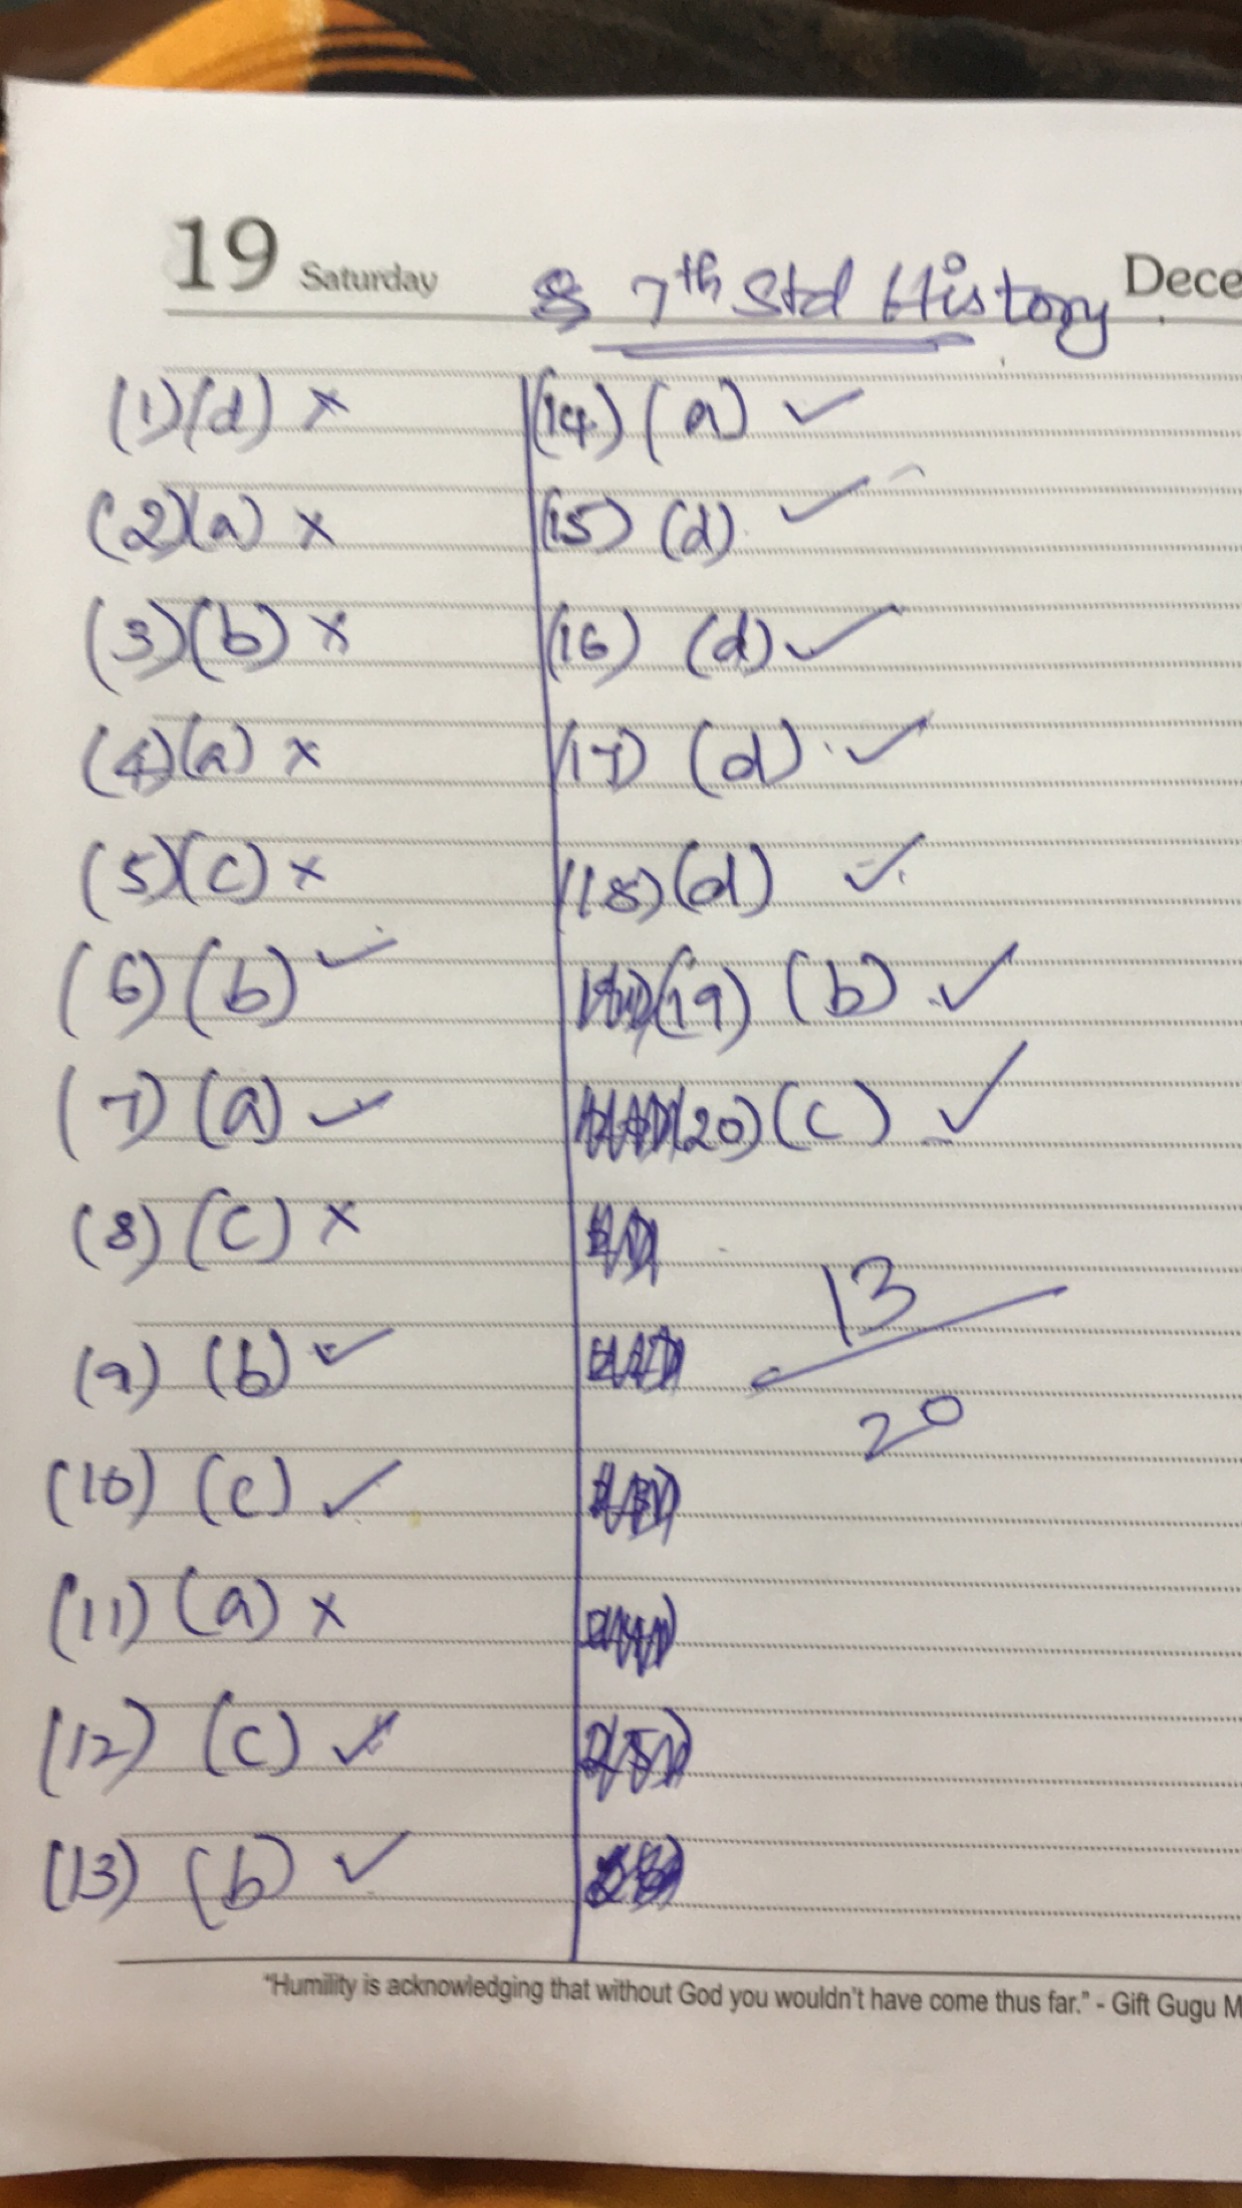 19 Saturday
7th Std History
Dece
(1) (d) ×
(2) (a) ×
(3) (b) ×
(4) (a) ×
(5) (c) ×
(6) (b) ✓
(7) (a) ✓
(8) (c) ×
(9) (b) ✓
(10) (c) ✓
(11) (a) ×
(12) (c) ✓
(13) (b) ✓
(14) (a) ✓
(15) (d) ✓
(16) (d) ✓
(17) (d) ✓
(18) (d) ✓
(19) (b) ✓
(20) (c) ✓
13
20
"Humility is acknowledging that without God you wouldn't have come thus far." - Gift Gugu M